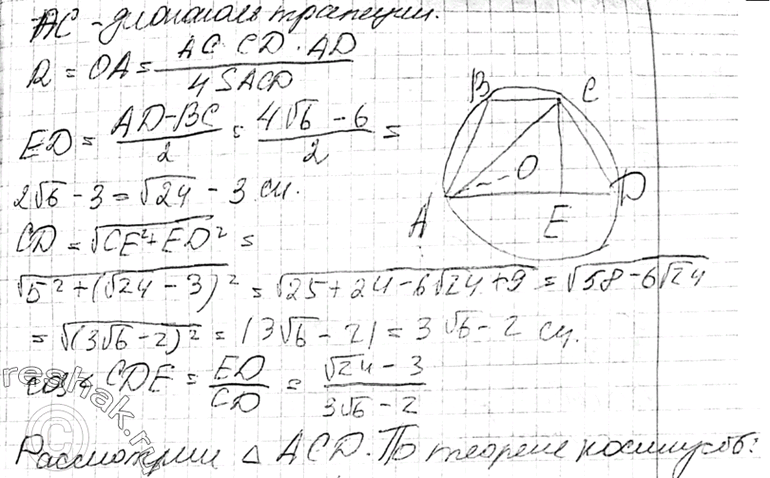 AC - диагональ трапеции.
R = OA = AC · CD · AD / 4 SACD
B C
ED = AD - BC / 2 = 4√6 - 6 / 2 =
O D
2√6 - 3 = √24 - 3 см.
A E
CD = √CE² + ED² =
√5² + (√24 - 3)² = √25 + 24 - 6√24 + 9 = √58 - 6√24
= √(3√6 - 2)² = |3√6 - 2| = 3√6 - 2 см.
cos∠CDE = ED / CD = √24 - 3 / 3√6 - 2
reshak.ru
Рассмотрим △ ACD. По теореме косинусов: